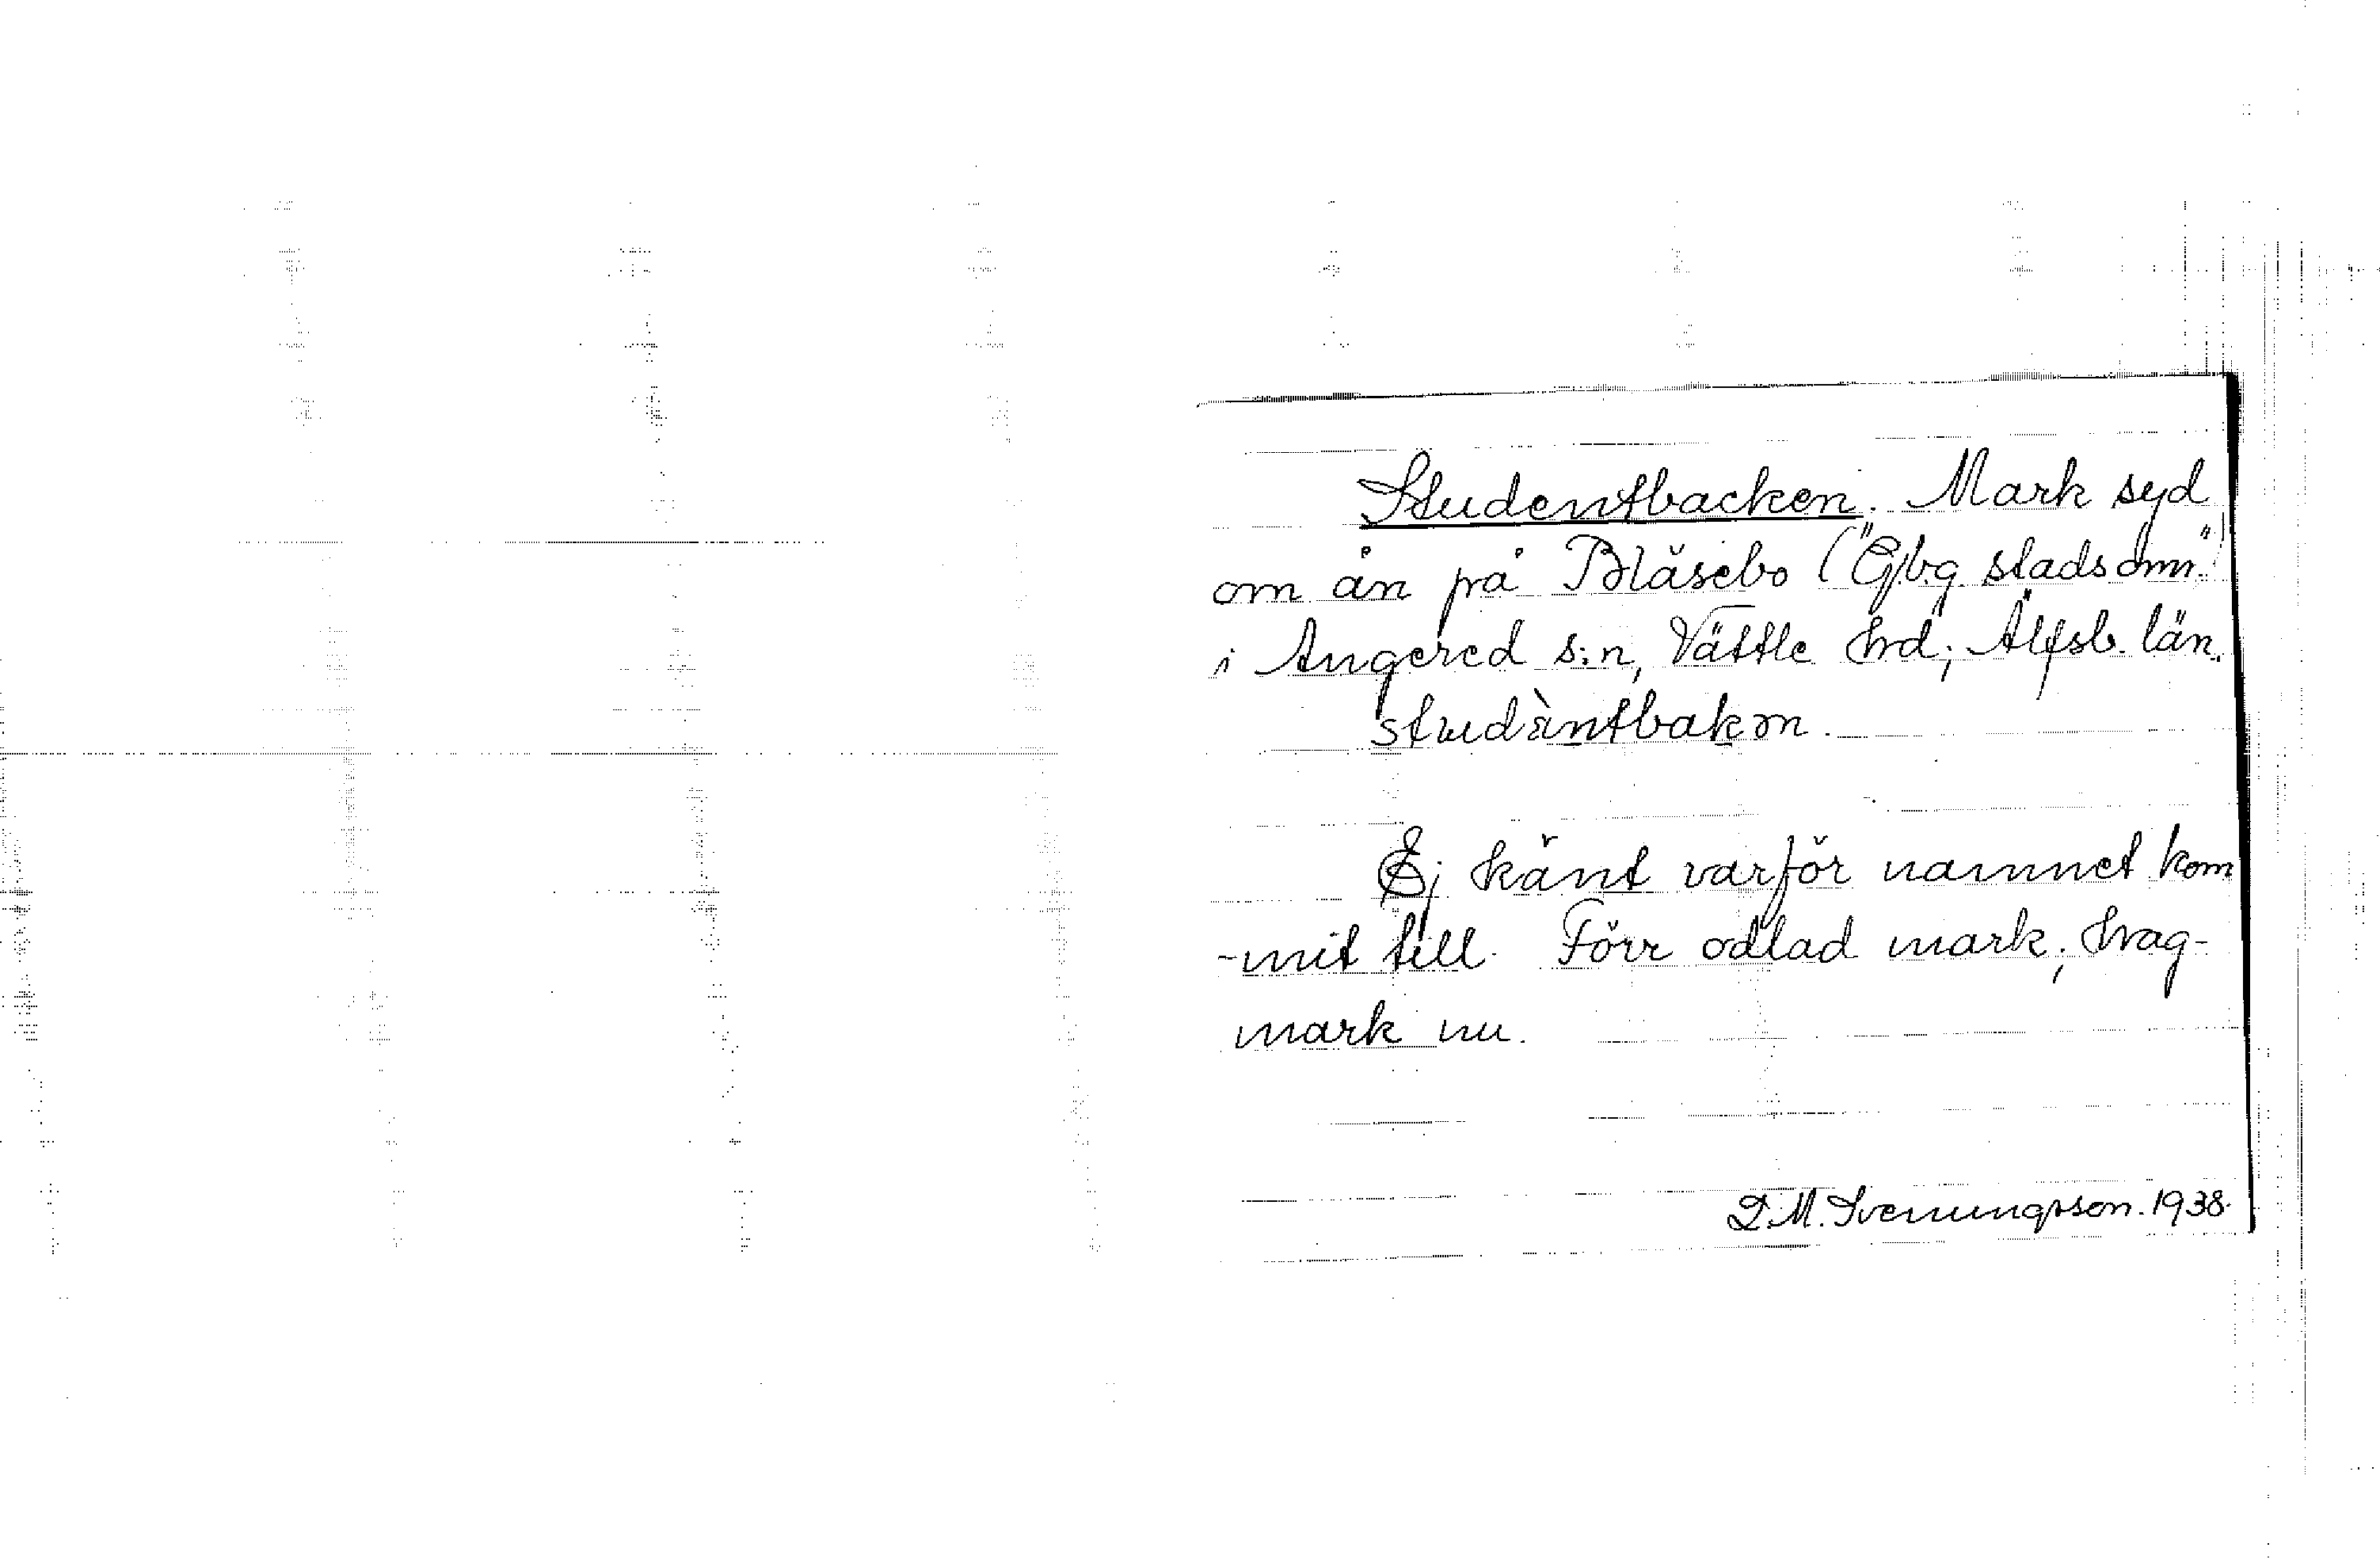 Studentbacken. Mark syd
om ån på Blåsebo ("Gbg. stadsdmr.")
i Angered s:n, Vättle hrd; Älfsb. län.
studäntbakən.
Ej känt varför namnet kom
-mit till. Förr odlad mark; hag-
mark nu.
D.M. Svenungsson. 1938.